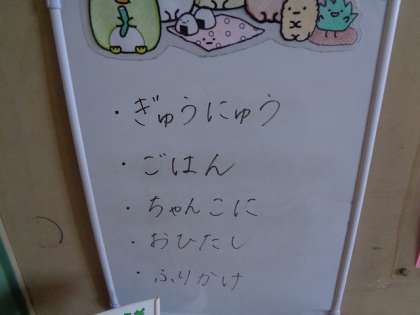 ・ぎゅうにゅう
・ごはん
・ちゃんこに
・おひたし
・ふりかけ